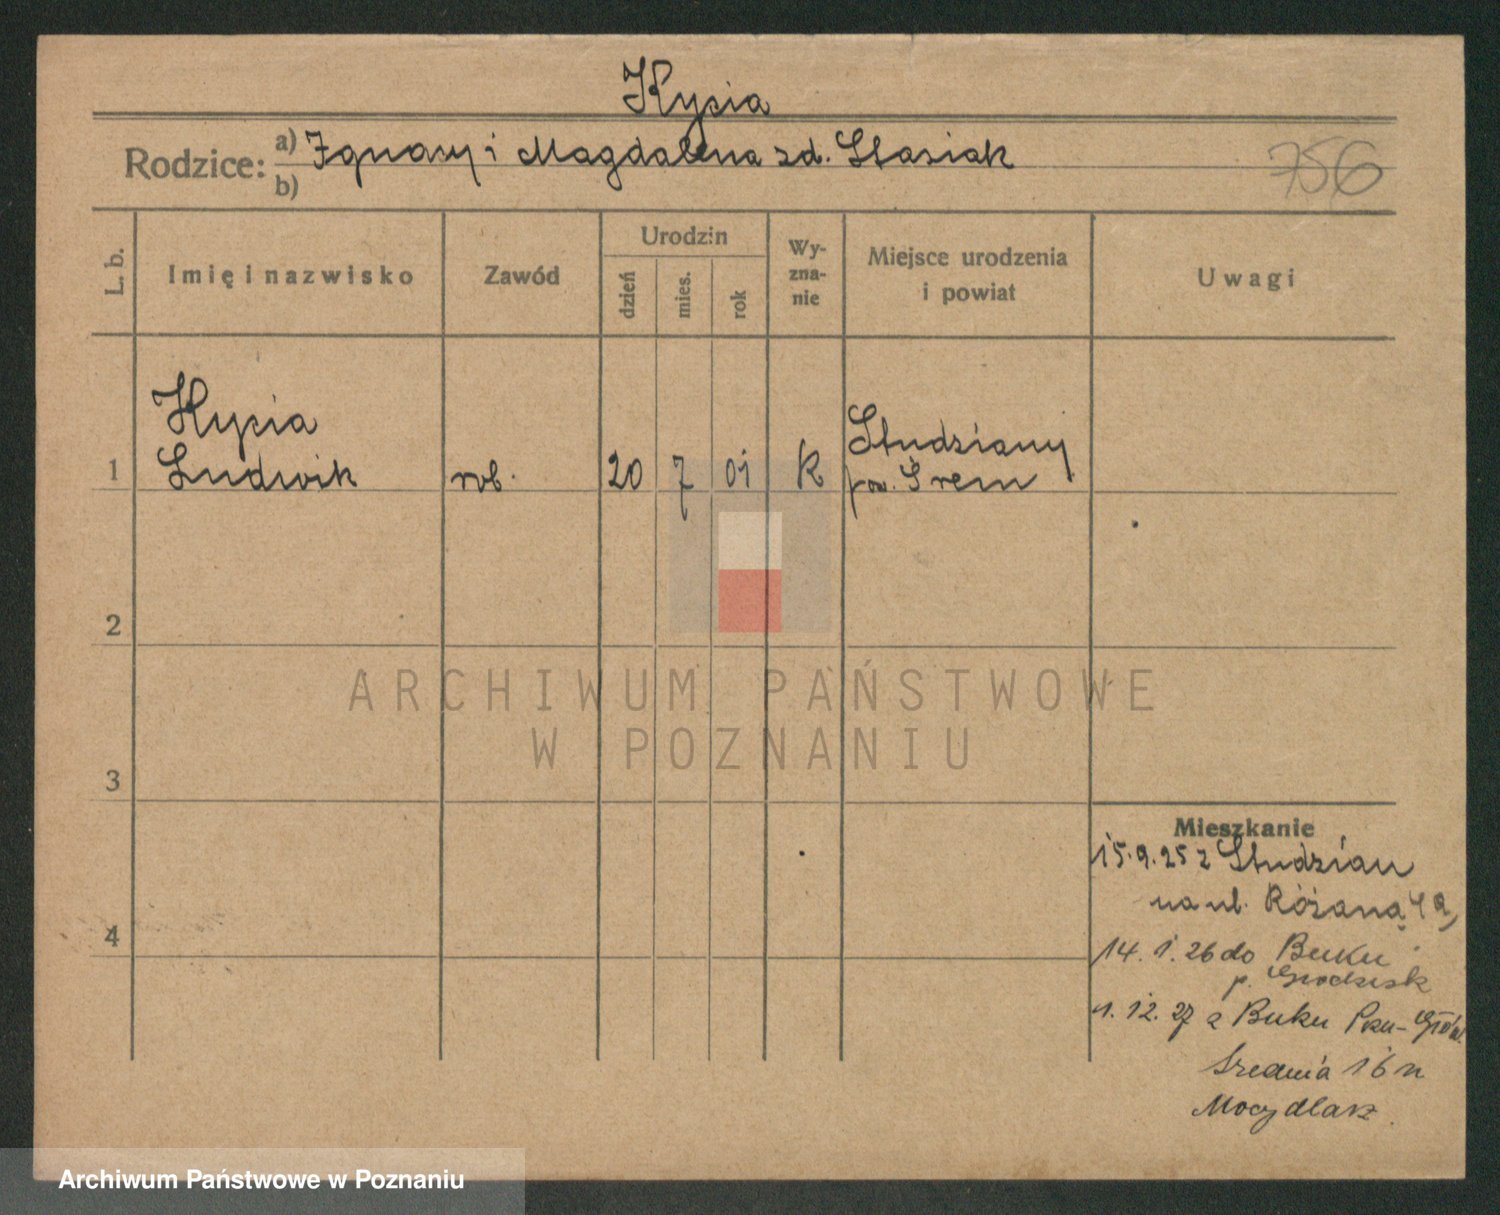 Kycia
Rodzice: a) Ignacy i Magdalena zd. Stasiak
b)
756
L. b.
Imię i nazwisko
Zawód
Urodzin
dzień
mies.
rok
Wy-
zna-
nie
Miejsce urodzenia
i powiat
Uwagi
Kycia
1 Ludwik rob. 20 7 01 K Studziany
pow. Śrem
2
ARCHIWUM PAŃSTWOWE
W POZNANIU
3
Mieszkanie
15.9.25 z Studzian
na ul. Różaną
4
14. 1. 26 do Buku
p. Grodzisk
1. 12. 27 z Buku Pzn-
Średnia 16 n
Archiwum Państwowe w Poznaniu